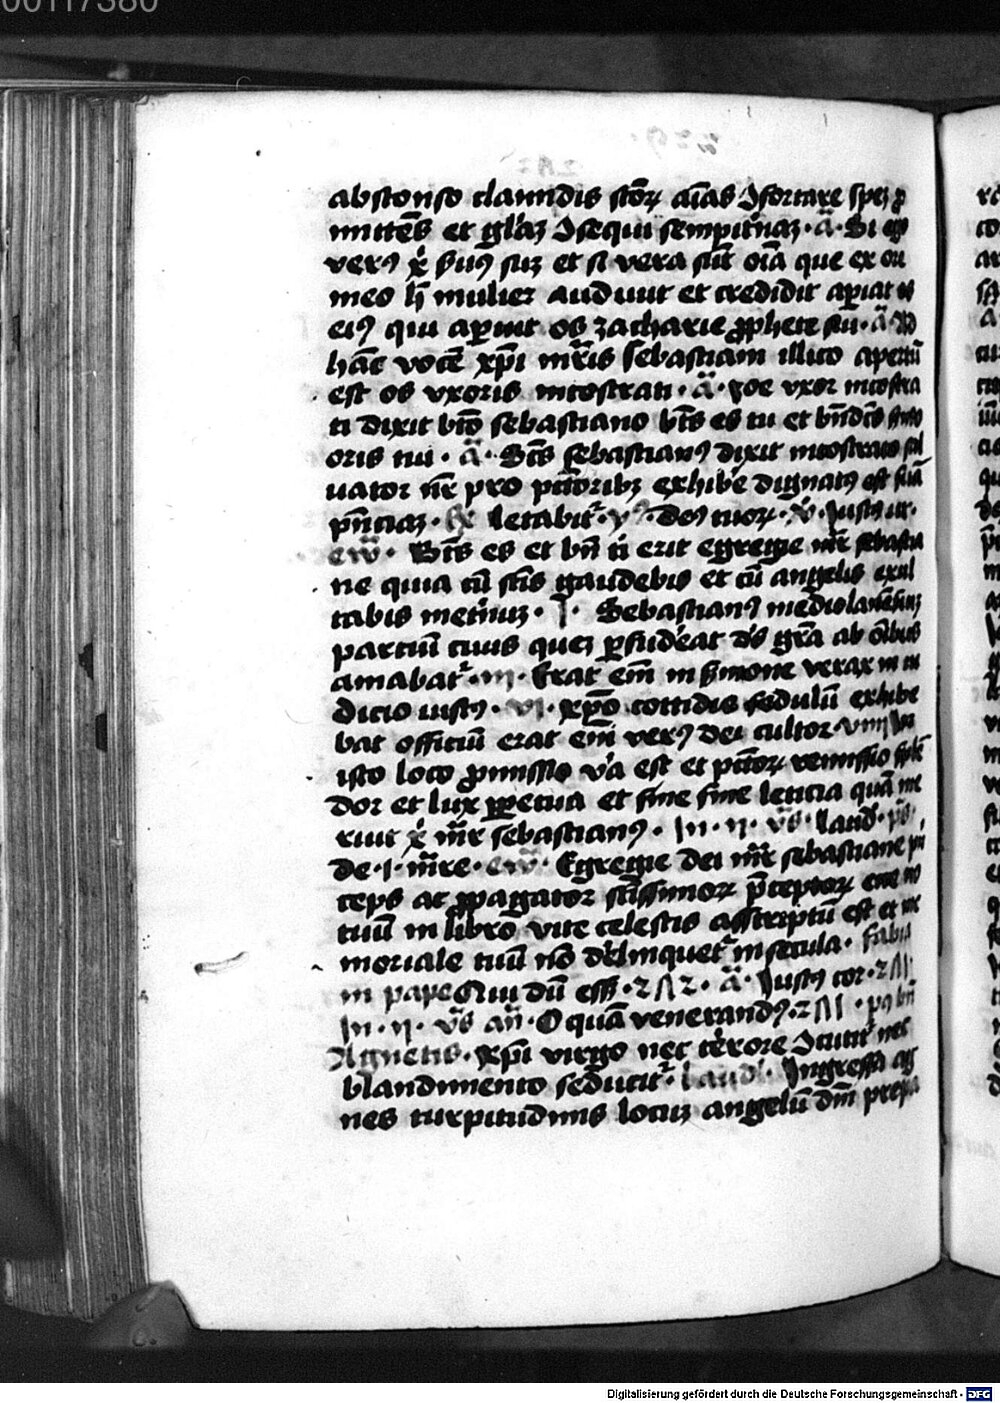 00117380
abstonso clamidis sto℞ aīas ꝯfortare spez ꝓ
mittēs et gl̄az ꝯsequi sempit̄naz · a̅ · Si ego
verꝰ xͥ ẜuꝰ suz et si vera sūt oīa que ex ore
meo h̄ mulier audiuit et credidit aꝑiat os
eiꝰ qui aꝑuit os zacharie ꝓphete sui · a̅ · Ad
hāc vocē xp̄i mr̄is sebastiani illico apertū
est os vxoris nicostrati · a̅ · zoe vxor nicostra
ti dixit bt̄o sebastiano bt̄s es tu et bn̄dc̄s ßmo
oris tui · a̅ · Bt̄s sebastianꝰ dixit nicostrato sal
uator nr̄ pro pcc̄oribꝫ exhibe dignatꝰ est suā
pn̄ciaz · letabit᷑ · deꝰ tuo℞ · Justus ut ·
ew̄ · Bt̄s es et bn̄ ti erit egregie mr̄ sebastia
ne quia cū sc̄is gaudebis et cū angelis exul
tabis
 in et̄nuz · I · Sebastianꝰ mediolanēsiuz
partiū ciuis quez ꝑsiderat ds̄ gr̄a ab oībus
amabat᷑ · m · Erat em̄ in ẜmone verax in iu
dicio iustꝰ · vi · xp̄o cottidie sedulū exhibe
bat officiū erat em̄ verꝰ dei cultor · viiii In
isto loco ꝓmissio v̄a est et pcc̄o℞ remissio splē
dor et lux ꝑpetua et sine fine leticia quā me
ruit xͥ mr̄ sebastianꝰ · In · ii · vs̄ · laud · ps̄
de · i · mr̄e · ew̄ · Egregie dei mr̄ sebastiane pri
ceps ac ꝓpagator sc̄issimo℞ p̄cepto℞ ecce no
tuū in libro vite celestis asscriptū est et me
moriale tuū nō derelinquet᷑ in secula · Fabia
ni pape dū ess · 2Λ2 · a̅ · Justꝰ cor · 2Λ1 ·
In · ii · vs̄ an̄ · O quā venerandꝰ · 2Λ1 ·
Agnetis · xp̄i virgo nec terrore ꝯcutit᷑ nec
blandimento seducit᷑ · laudꝰ · Ingressa ag
nes turpitudinis locuz angelū dn̄i prepa
Digitalisierung gefördert durch die Deutsche Forschungsgemeinschaft · DFG